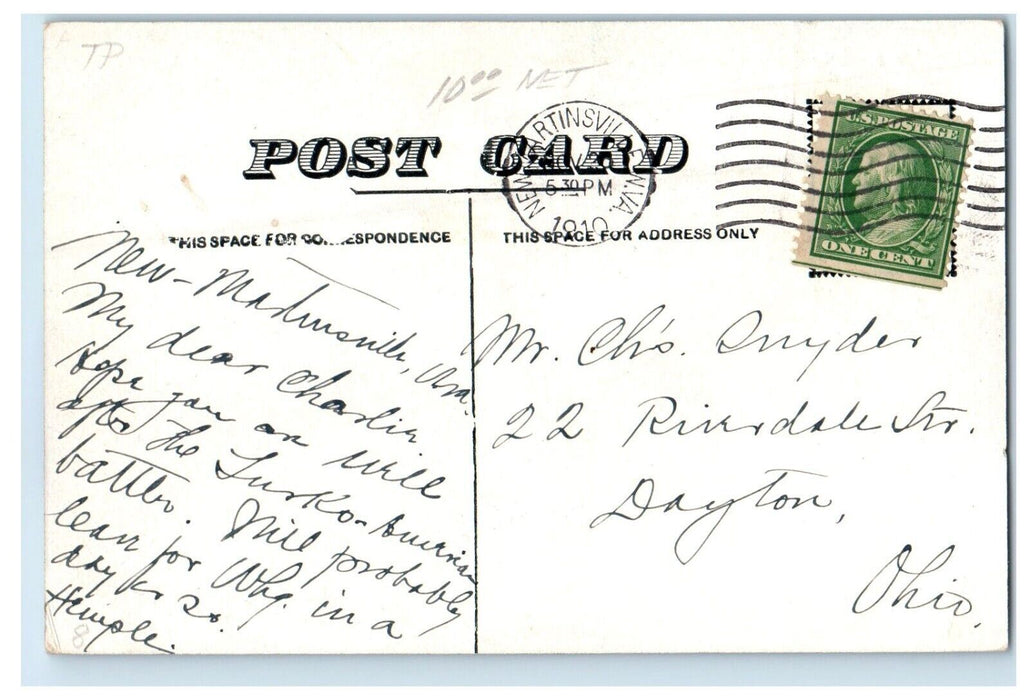 TP
10.00 NET
POST CARD
NEW MARTINSVILLE W.VA.
5 30 PM
1910
U.S. POSTAGE
ONE CENT
THIS SPACE FOR CORRESPONDENCE
THIS SPACE FOR ADDRESS ONLY
New-Martinsville, W.Va.
My dear Charlie
Hope you are well
after the Turko-American
battle. Will probably
leave for Whg. in a
day or so.
Hemple.
8
Mr. Chs. Snyder
22 Riverdale Str.
Dayton,
Ohio,